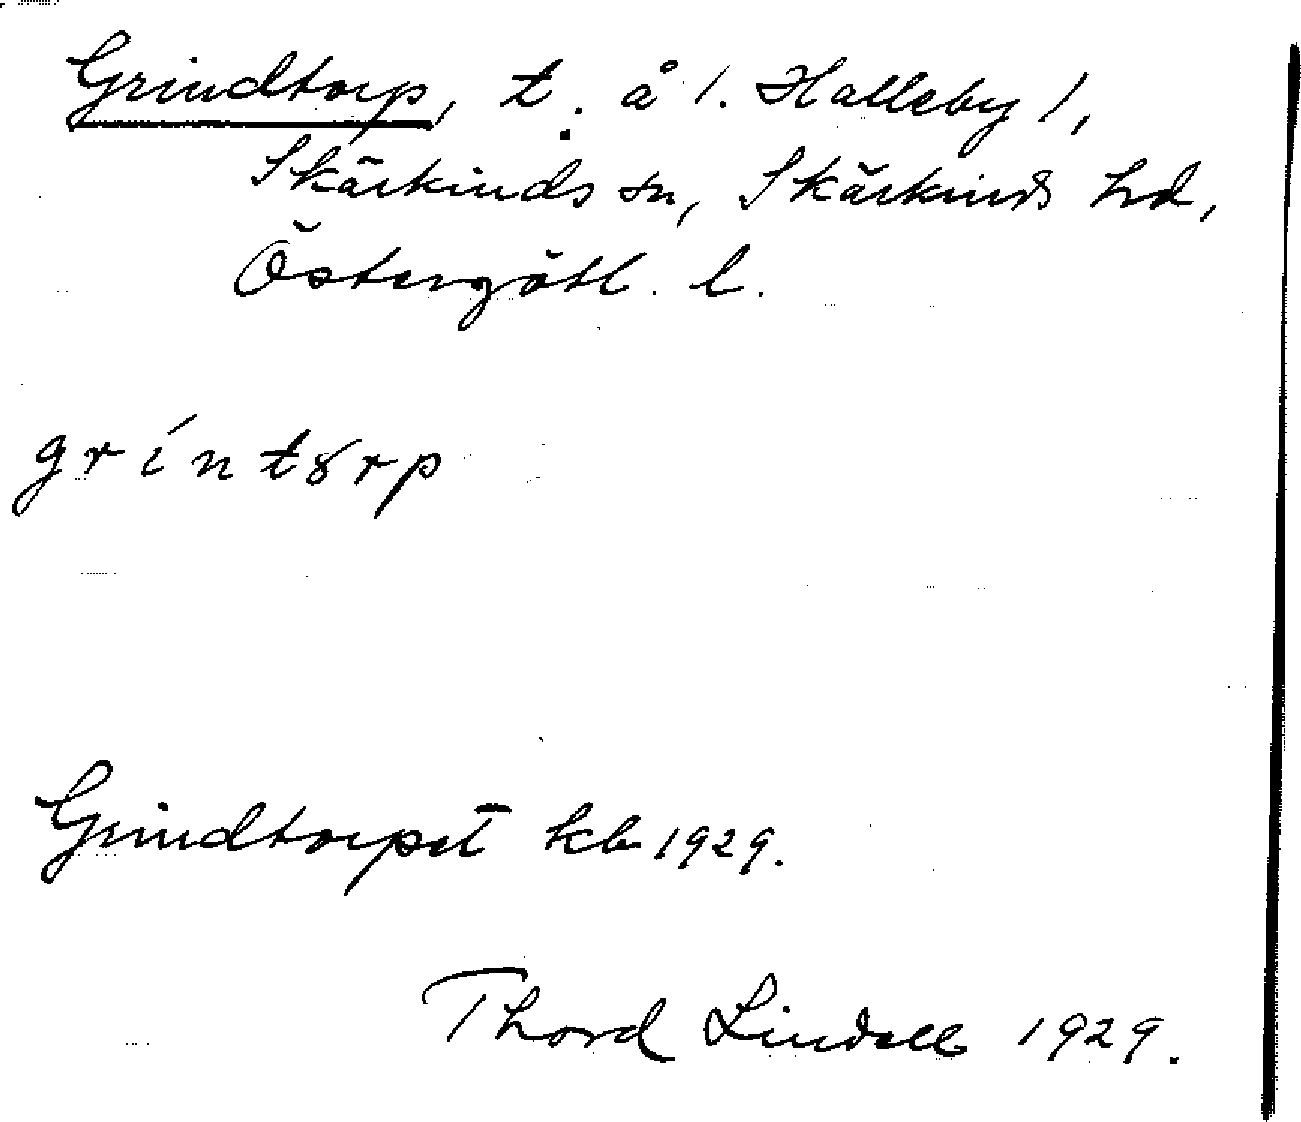 Grindtorp, t. å 1. Halleby 1,
Skärkinds sn, Skärkinds hd,
Östergötl. l.
gríntȣrp
Grindtorpet kb 1929.
Thord Lindell 1929.